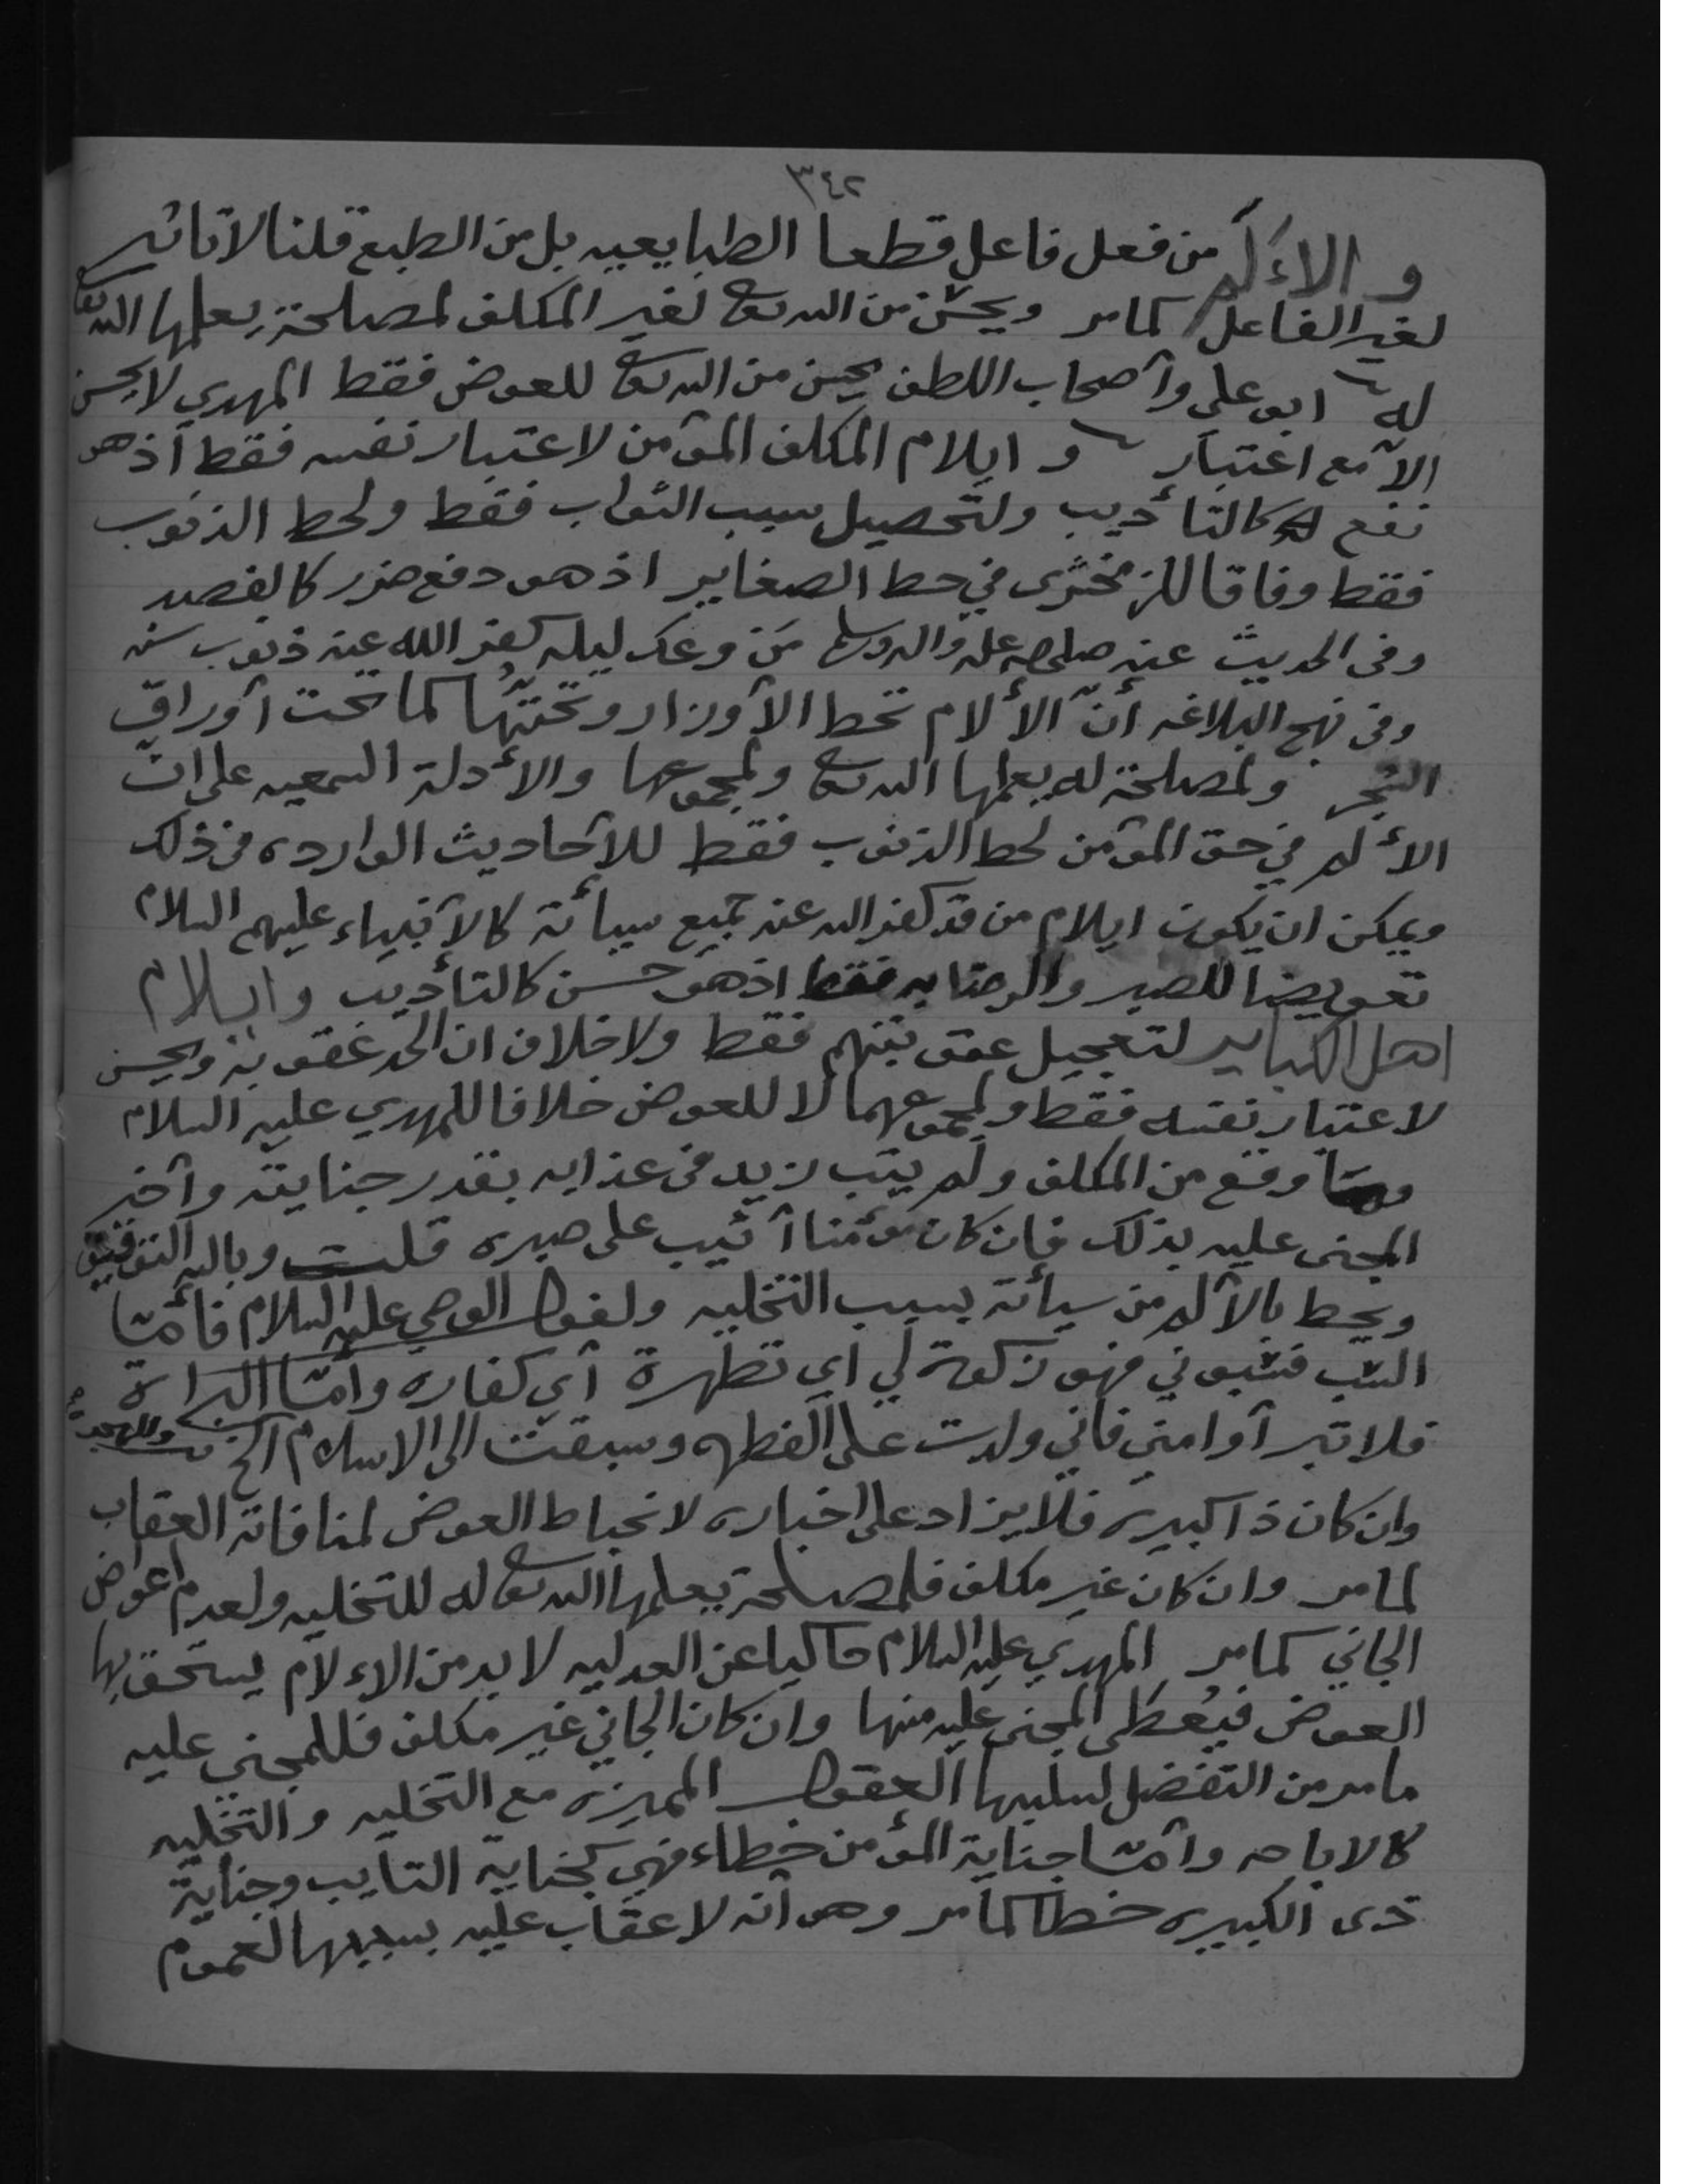 ٣٤٢
و الاءلم من فعل فاعل قطعا الطبايعيه بل من الطبع قلنا لا تاثير
لغير الفاعل كما مر ويحسن من الله تعالى لغير المكلف لمصلحة يعلمها الله تعالى
له ابو علي وأصحاب اللطف يحسن من الله تعالى للعوض فقط المهدي لا يحسن
الا مع اعتبار و ايلام المكلف المؤمن لاعتبار نفسه فقط أذ هو
نفع له كالتأديب ولتحصيل سبب الثواب فقط ولحط الذنوب
فقط وفاقا للزمخشرى في حط الصغاير اذ هو دفع ضرر كالفصد
وفى الحديث عنه صلى الله عليه واله وسلم مَن وعك ليله كفر الله عنه ذنوب سنه
وفى نهج البلاغه أنّ الألام تحط الأوزار وتحتّها كما تحت أوراق
الشجر ولمصلحة له يعلمها الله تعالى ولمجموعها والأدلة السمعيه على ان
الألم في حق المؤمن لحط الذنوب فقط للأحاديث الوارده فى ذلك
ويمكن ان يكون ايلام من قد كفر الله عنه جميع سيأته كالأنبياء عليهم السلام
تعويضا للصبر والرضا به فقط اذ هو حسن كالتأديب وايلام
اهل الكباير لتعجيل عقوبتهم فقط ولا خلاف ان الحد عقوبة ويحسن
لاعتبار نفسه فقط ولمجموعهما لا للعوض خلافا للمهدي عليه السلام
وما وقع من المكلف ولم يتب زيد فى عذابه بقدر جنايته وأخبر
المجنى عليه بذلك فان كان مؤمنا أثيب على صبره قلت وبالله التوفيق
ويحط بالألم من سيأته بسبب التخليه ولقول الوصي عليه السلام فأمّا
السّب فسّبوني فهو زكوة لي اي تطهرة أي كفاره وامّا البراءة
فلا تبرأوا منى فاني ولدت على الفطره وسبقت الى الاسلام الخ
وان كان ذا كبيره فلا يزاد على اخباره لانحباط العوض لمنافاته العقاب
لما مر وان كان غير مكلف فلمصلحة يعلمها الله تعالى له للتخليه ولعدم اعواض
الجاني كما مر المهدي عليه السلام حاكيا عن العدليه لا بد من الاءلام يستحق بها
العوض فيُعطى المجنى عليه منها وان كان الجاني غير مكلف فللمجني عليه
ما مر من التفضل لسلبها العقول المميزه مع التخليه و التخليه
كالاباحه وأمّا جناية المؤمن خطاء فهي كجناية التايب وجناية
ذى الكبيره خطا كما مر وهو أنه لا عقاب عليه بسببها لعموم